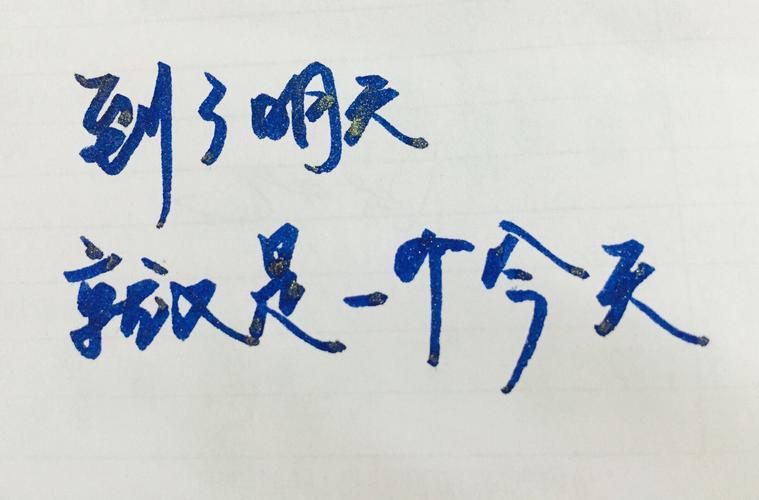 到了明天
就又是一个今天